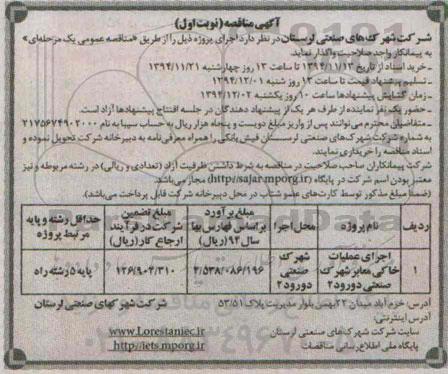 آگهی مناقصه (نوبت اول)
شرکت شهرک‌های صنعتی لرستان در نظر دارد اجرای پروژه ذیل را از طریق «مناقصه عمومی یک مرحله‌ای»
به پیمانکار واجد صلاحیت واگذار نماید.
-خرید اسناد از تاریخ ۱۳۹۴/۱۱/۱۳ تا ساعت ۱۳ روز چهارشنبه ۱۳۹۴/۱۱/۲۱
- تسلیم پیشنهاد قیمت تا ساعت ۱۳ روز شنبه ۱۳۹۴/۱۲/۰۱
- زمان گشایش پیشنهادها ساعت ۱۰ روز یکشنبه ۱۳۹۴/۱۲/۰۲
- حضور یک نفر نماینده از طرف هر یک از پیشنهاد دهندگان در جلسه افتتاح پیشنهادها آزاد است.
- متقاضیان محترم می‌توانند پس از واریز مبلغ دویست و پنجاه هزار ریال به حساب سیبا به نام ۲۱۷۵۶۷۴۹۰۲۰۰۰
به شماره شرکت شهرک‌های صنعتی لرستان فیش بانکی را همراه معرفی‌نامه به دبیرخانه شرکت تحویل نموده و
اسناد مناقصه را خریداری نمایند.
شرکت پیمانکاران صاحب صلاحیت در مناقصه به شرط داشتن ظرفیت آزاد (تعدادی و ریالی) در رشته مربوطه و نیز
معتبر بودن اسم شرکت در پایگاه (http://sajar.mporg.ir) مجاز می‌باشد.
(ضمناً مبلغ مذکور توسط کارت‌های عضو شتاب در محل دبیرخانه شرکت قابل پرداخت می‌باشد).
ردیف نام پروژه محل اجرا مبلغ برآورد براساس فهارس بها سال ۹۴ (ریال) مبلغ تضمین شرکت در فرآیند ارجاع کار (ریال) حداقل رشته و پایه مرتبط پروژه
۱ اجرای عملیات خاکی معابر شهرک صنعتی دورود۲ شهرک صنعتی دورود۲ ۲/۵۳۸/۰۸۶/۱۹۶ ۱۲۶/۹۰۴/۳۱۰ پایه ۵ رشته راه
آدرس: خرم آباد میدان ۲۲بهمن بلوار مدیریت پلاک ۵۳/۵۱
شرکت شهرکهای صنعتی لرستان
آدرس اینترنتی:
سایت شرکت شهرک‌های صنعتی لرستان www.Lorestaniec.ir
پایگاه ملی اطلاع رسانی مناقصات http://iets.mporg.ir